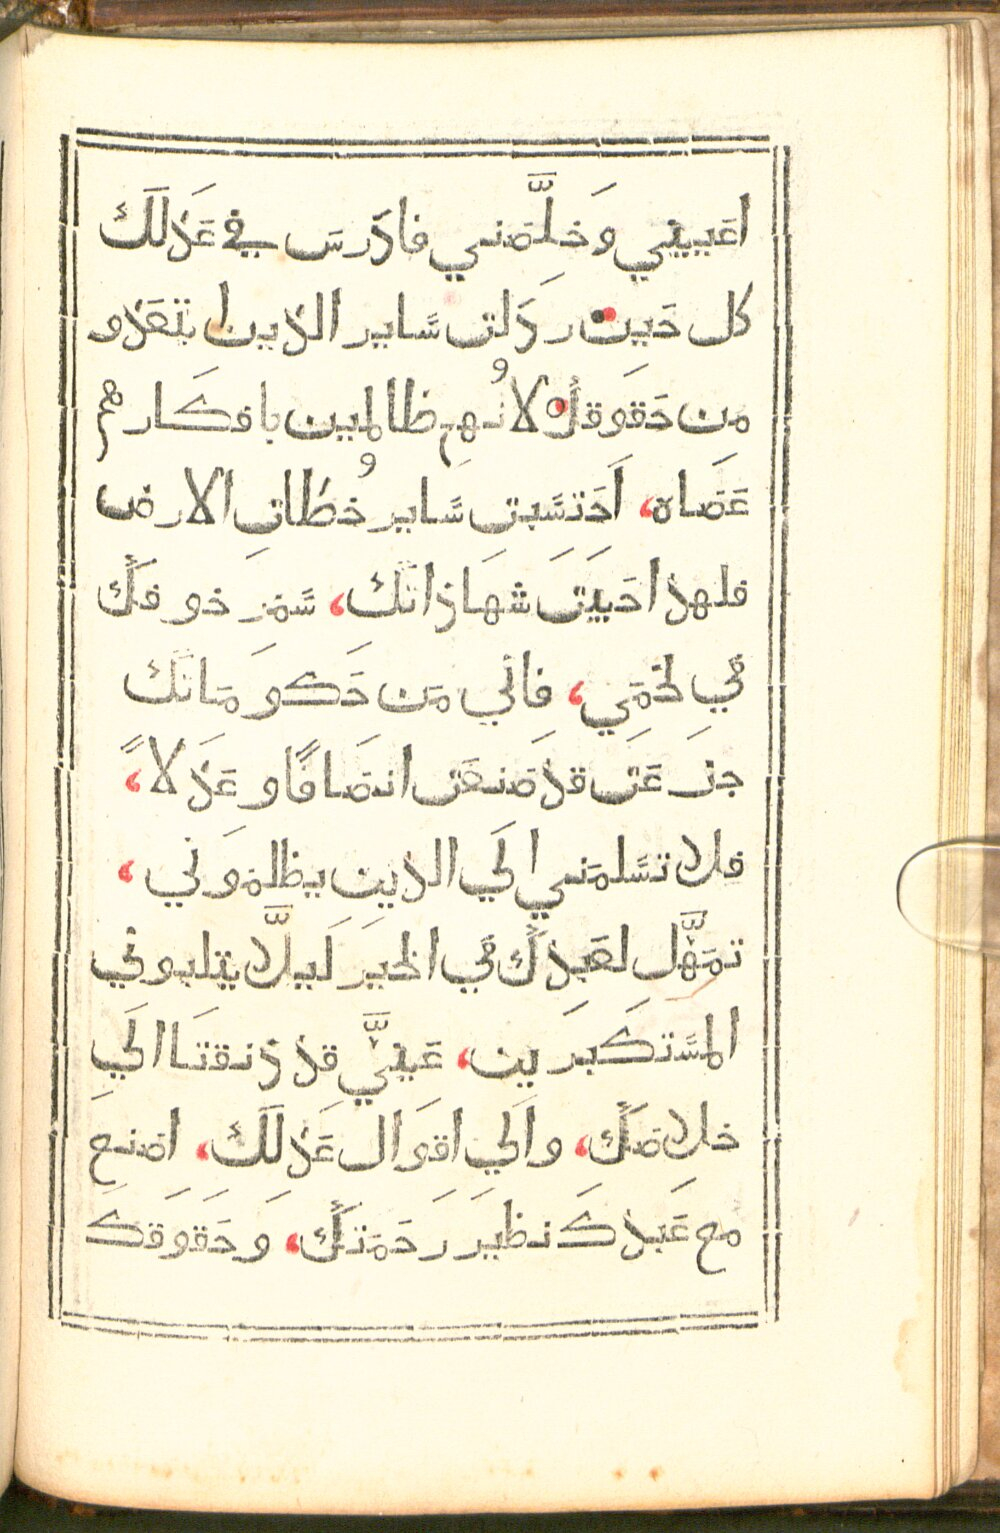 اعَيِيني وَخلَّصَني فادَرسَ في عَدلَكَ
كل حَين ردَلت سَاير الذين ابتعَدو
مِن حَقوَقكَ لانُهم ظالمين بافكَارهم
عَصَاه، اَحَتسَبت سَاير خُطاة الارض
فلهذا احَبيَتَ شهَاذاتكَ، سَمرَ خوفكَ
في لحَمَي، فاني مَن حَكوَمَاتكَ
جزَعَت قد صَنعَت انصَافًا وعَدلاً،
فلا تسَلمَني الَي الذين يظلمَوَني،
تمَهَّل لعَبدكَ في الخيَر ليلَّا يتلبوني
المسَتكَبرَين، عَينيَّ قد ذنقتَا الَي
خلاصَكَ، والَي اقوَال عَدلَكَ، اصَنع
مع عَبدكَ نظيَر رَحمَتكَ، وَحَقوَقكَ